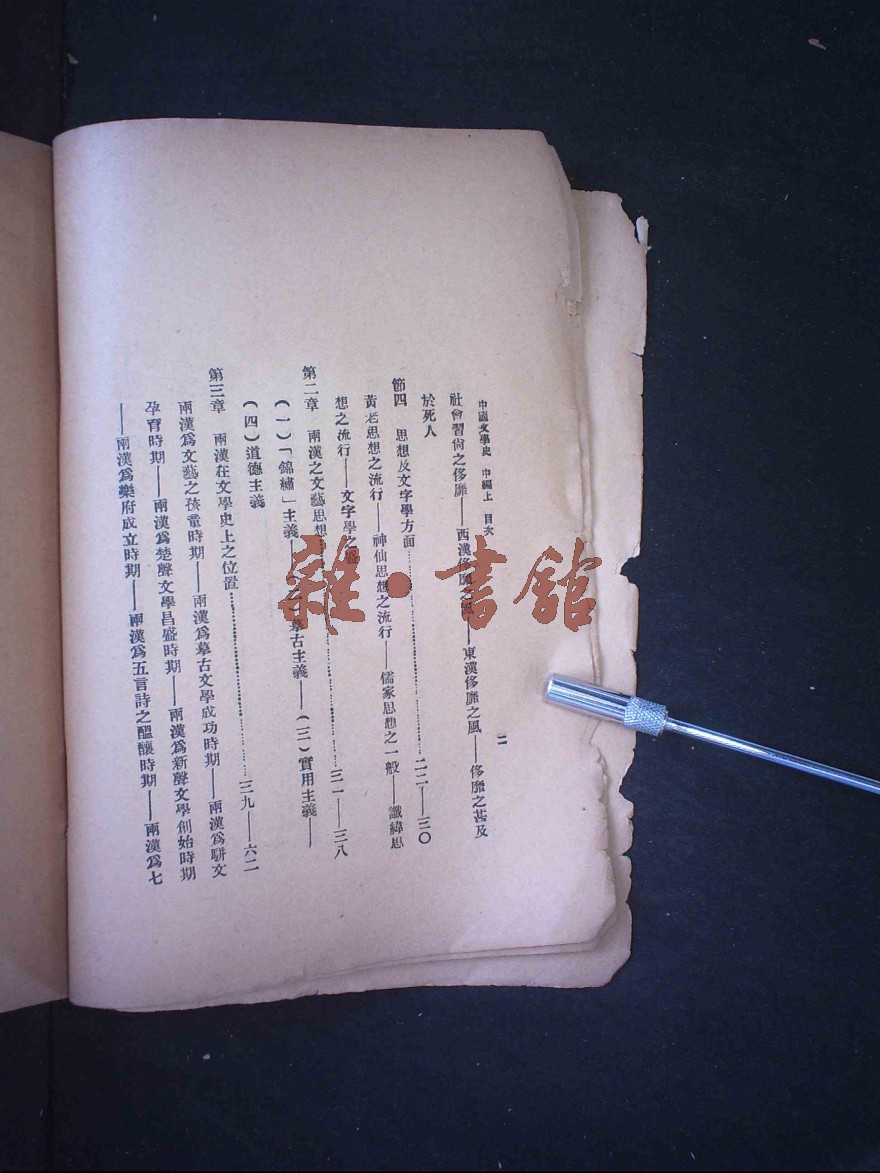 中國文學史　中編上　目次　二
社會習尚之侈靡——西漢侈靡之風——東漢侈靡之風——侈靡之甚及
於死人
節四　思想及文字學方面……二二——三〇
黃老思想之流行——神仙思想之流行——儒家思想之一般——讖緯思
想之流行——文字學之
第二章　兩漢之文藝思想……三一——三八
（一）「錦繡」主義——摹古主義——（三）實用主義——
（四）道德主義
第三章　兩漢在文學史上之位置……三九——六二
兩漢爲文藝之孩童時期——兩漢爲摹古文學成功時期——兩漢爲駢文
孕育時期——兩漢爲楚聲文學昌盛時期——兩漢爲新聲文學創始時期
——兩漢爲樂府成立時期——兩漢爲五言詩之醞釀時期——兩漢爲七
雜·書館